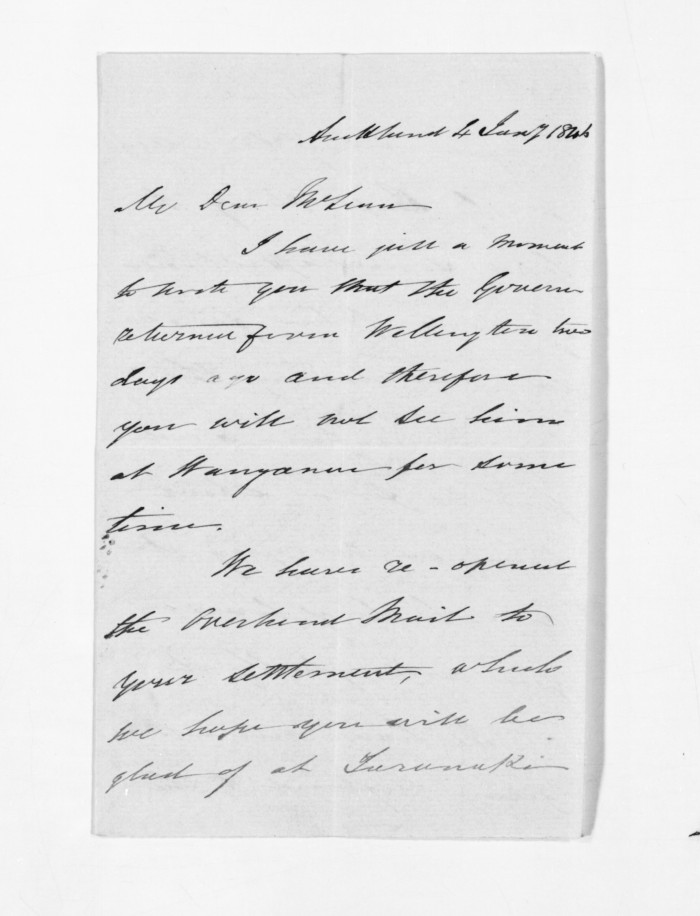 Auckland 4 Jany 184
My Dear McLean
I have just a moment
to write you that the Govern
returned from Wellington two
days ago and therefore
you will not see him
at Wanganui for some
time.
We have re-opened
the Overland Mail to
your settlement, which
we hope you will be
glad of at Taranaki